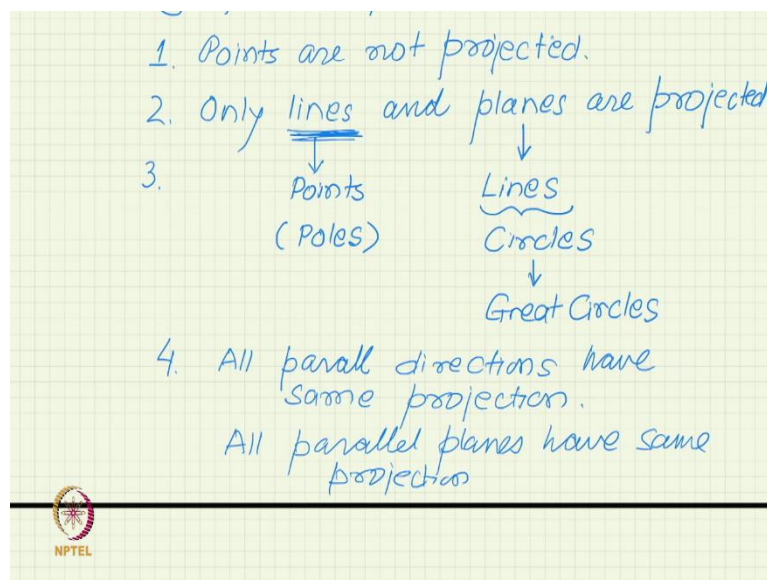 1. Points are not projected.
2. Only lines and planes are projected
3. Points Lines
(Poles) Circles
Great Circles
4. All parall directions have
same projection.
All parallel planes have same
projection
NPTEL